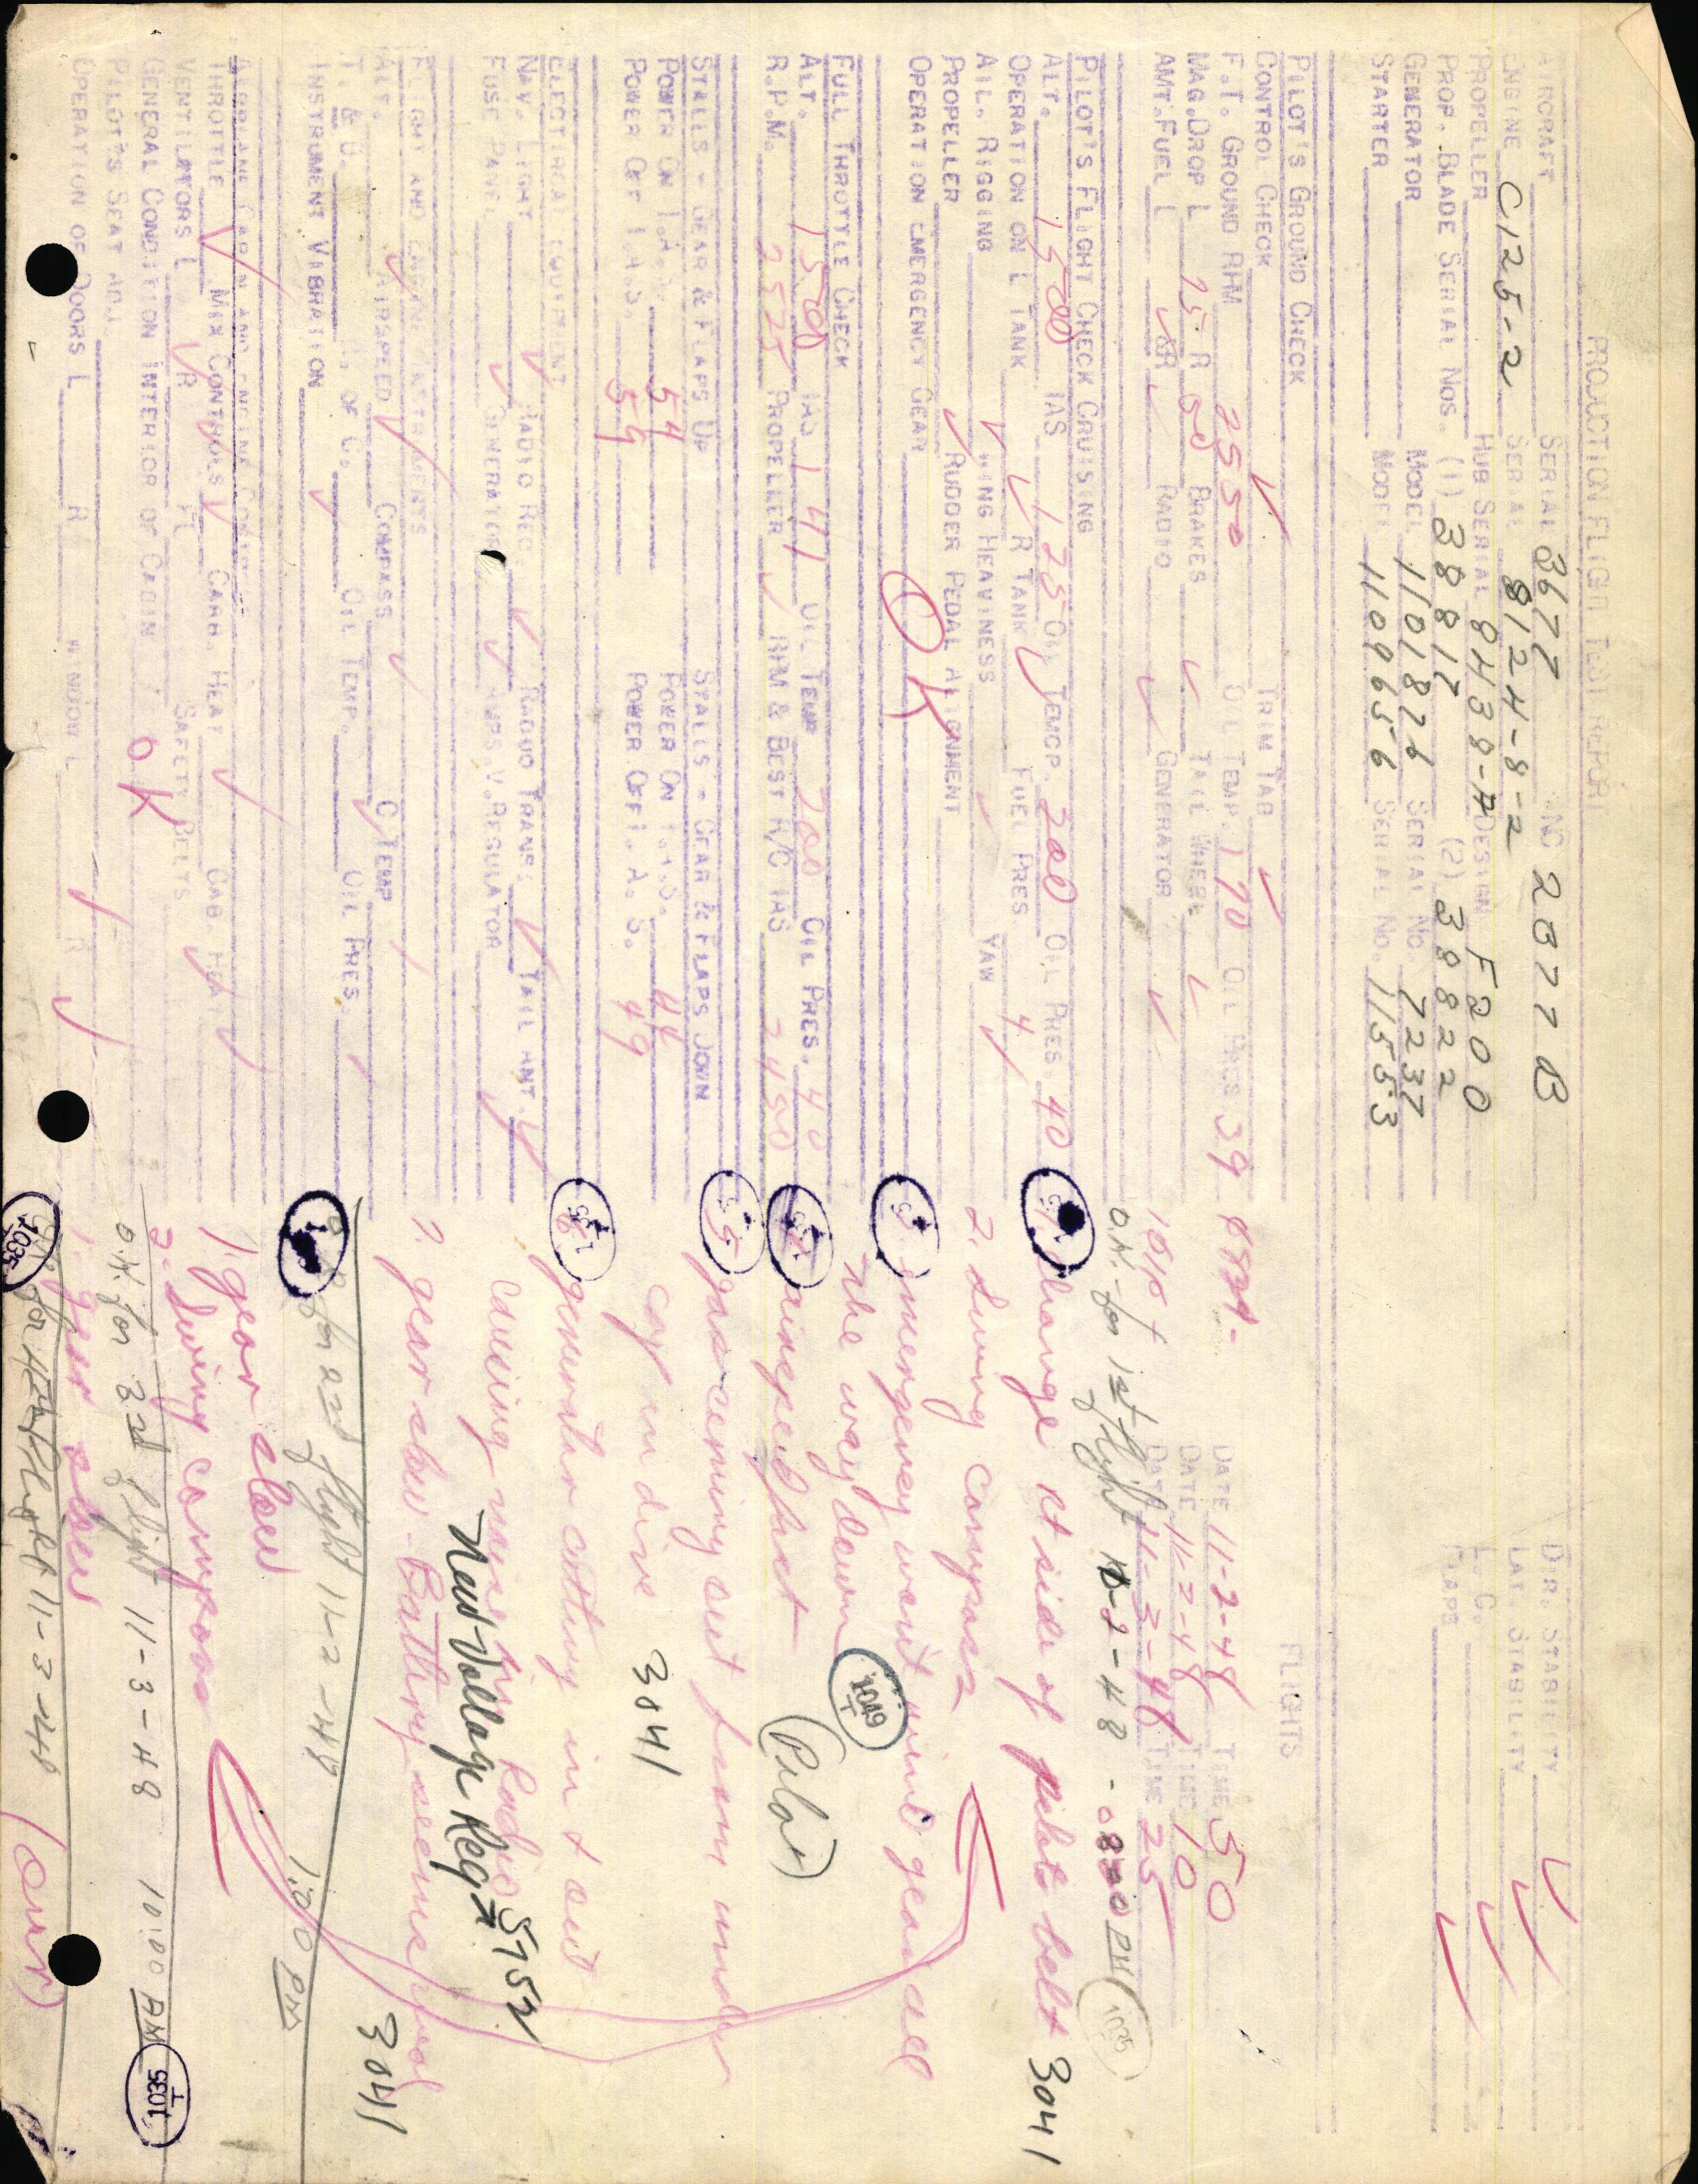 PRODUCTION FLIGHT TEST REPORT
AIRCRAFT SERIAL 3677 NC 2877B DIR. STABILITY ✓
ENGINE C125-2 SERIAL 8124-8-2 LAT. STABILITY ✓
PROPELLER HUB SERIAL 8438-A DESIGN F200 L. G. ✓
PROP. BLADE SERIAL NOS. (1) 38817 (2) 38822 FLAPS ✓
GENERATOR MODEL 1101876 SERIAL NO. 7237
STARTER MODEL 1109656 SERIAL NO. 11553
PILOT'S GROUND CHECK FLIGHTS
CONTROL CHECK ✓ TRIM TAB ✓
F.T. GROUND RPM 2550 OIL TEMP. 170 OIL PRES 39 DATE 11-2-48 TIME 50
MAG. DROP L 75 R 50 BRAKES ✓ TAIL WHEEL ✓ DATE 11-2-48 TIME 10
AMT. FUEL L ✓ R ✓ RADIO ✓ GENERATOR ✓ DATE 11-3-48 TIME 25
O.K. for 1st flight
PILOT'S FLIGHT CHECK CRUISING
ALT. 1500 IAS 125 OIL TEMP. 200 OIL PRES. 40 change rt side of pilots belt 3041
OPERATION ON L TANK ✓ R TANK ✓ FUEL PRES 4
AIL. RIGGING ✓ WING HEAVINESS ✓ YAW ✓ 2. Swing compass
PROPELLER ✓ RUDDER PEDAL ALIGNMENT
OPERATION EMERGENCY GEAR OK emergency won't wind gear all
the way down 1049 T
FULL THROTTLE CHECK
ALT. 1500 IAS 141 OIL TEMP 200 OIL PRES. 40 airspeed fast (Pilot)
R.P.M. 2525 PROPELLER ✓ RPM & BEST R/C IAS 2450
STALLS - GEAR & FLAPS UP STALLS - GEAR & FLAPS DOWN gas coming out from under
POWER ON I.A.S. 54 POWER ON I.A.S. 44
POWER OFF I.A.S. 59 POWER OFF I.A.S. 49 cap in dive 3041
ELECTIREAL EQUIPMENT generator cutting in & out
NAV. LIGHT ✓ RADIO REC. ✓ RADIO TRANS. ✓ TAIL ANT. ✓ causing noise in Radio
FUSE PANEL ✓ GENERATOR ✓ AMPS. V. REGULATOR New Voltage Reg. 5752
FLIGHT AND ENGINE INSTRUMENTS 7. gear slow - Battery seems weak
ALT. ✓ AIRSPEED ✓ COMPASS ✓ C. TEMP ✓ 3041
T. & B. OIL TEMP. ✓ OIL PRES. ✓
INSTRUMENT VIBRATION ✓ for 2nd flight 11-2-48 1:00 PM
AIRPLANE CABIN AND ENGINE CONTROLS 1. gear slow
THROTTLE ✓ MIX CONTROLS ✓ CARB. HEAT ✓ CAB. HEAT ✓
VENTILATORS L ✓ R ✓ SAFETY BELTS ✓ 2. Swing compass
GENERAL CONDITION INTERIOR OF CABIN OK
PILOT'S SEAT ADJ. ✓ O.K. for 3rd flight 11-3-48 10:00 AM 1035 T
OPERATION OF DOORS L R WINDOW L R ✓ 1. gear slow
1035 for 4th flight 11-3-48 (over)